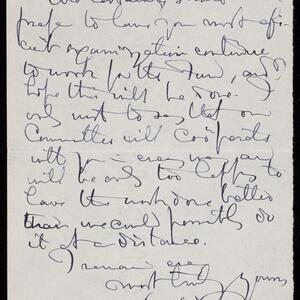 prefer to have your most effi-
cient organization continue
to work for the Fund, and I
hope this will be done. I
only want to say that our
Committee will coöperate
with you in every way and
will be only too happy to
have the work done better
than we could possibly do
it at a distance.
I remain ever
most truly yours